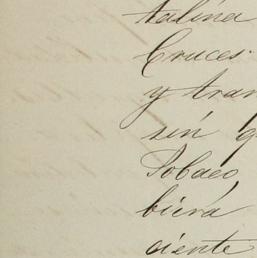 talina
Cruces.
y tran
sin q
Tobaco
bierá
ciente